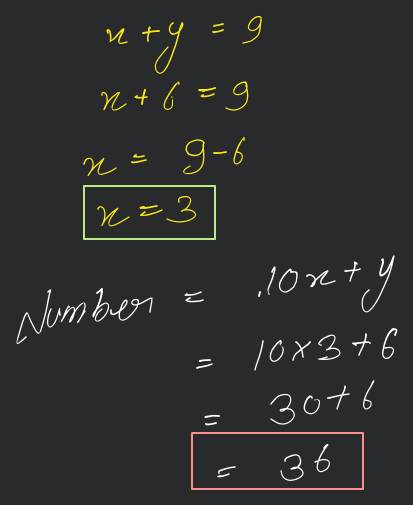 x + y = 9
x + 6 = 9
x = 9 - 6
x = 3
Number = 10x + y
= 10 × 3 + 6
= 30 + 6
= 36